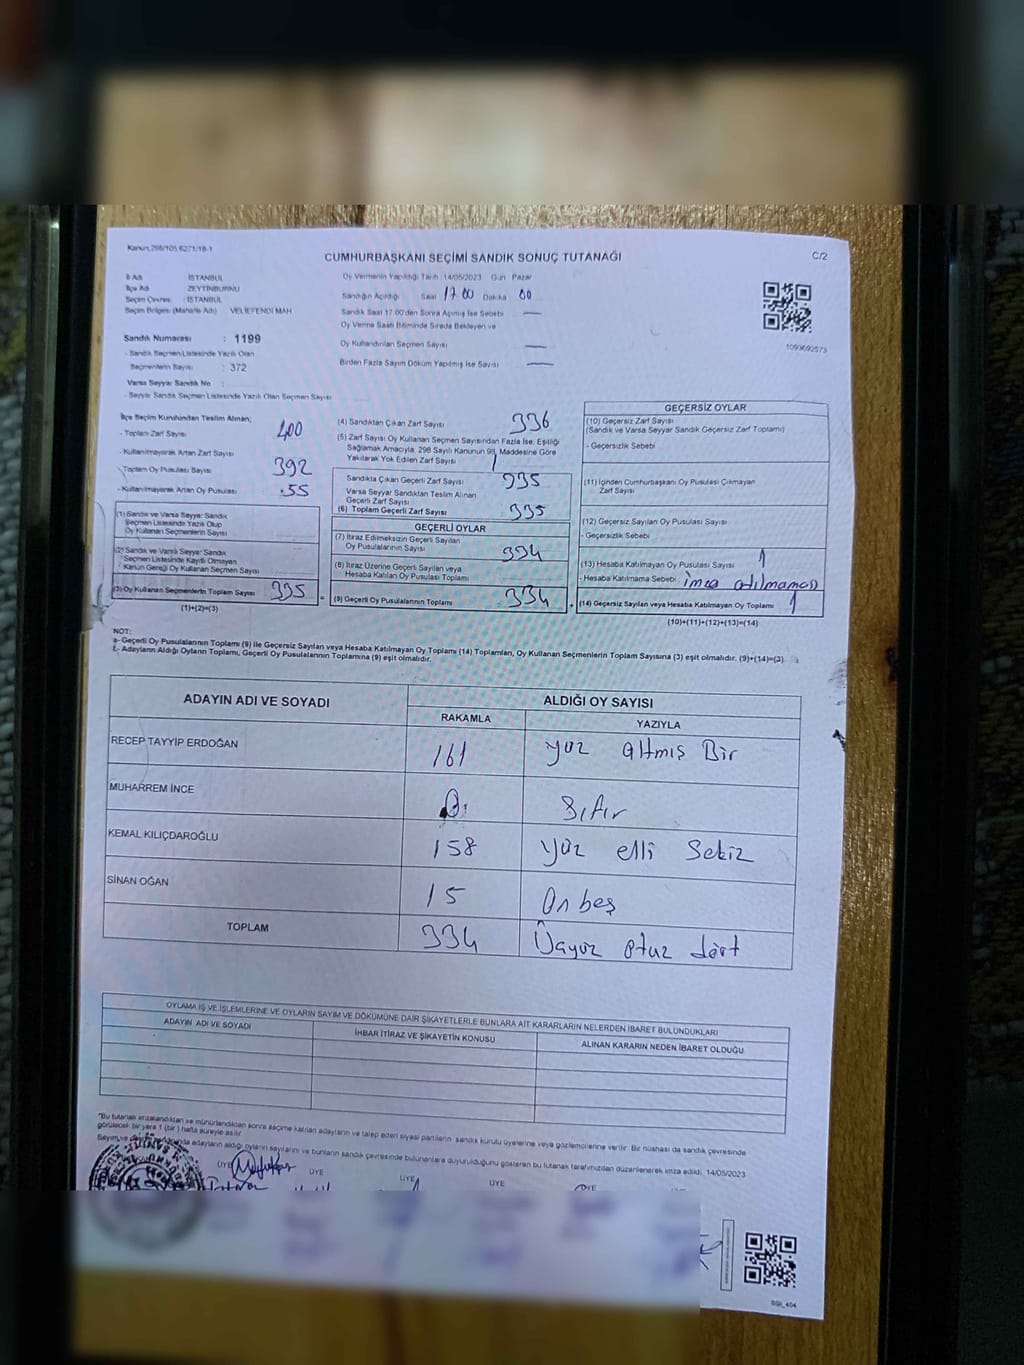 Kanun,298/105,6271/18-1
CUMHURBAŞKANI SEÇİMİ SANDIK SONUÇ TUTANAĞI
C/2
İl Adı : İSTANBUL
İlçe Adı : ZEYTİNBURNU
Seçim Çevresi : İSTANBUL
Seçim Bölgesi (Mahalle Adı) : VELİEFENDİ MAH
Oy Vermenin Yapıldığı Tarih :14/05/2023 Gün : Pazar
Sandığın Açıldığı Saat 17.00 Dakika 00
Sandık Saat 17:00'den Sonra Açılmış İse Sebebi —
Oy Verme Saati Bitiminde Sırada Bekleyen ve
Oy Kullandırılan Seçmen Sayısı —
Birden Fazla Sayım Döküm Yapılmış İse Sayısı —
1093692573
Sandık Numarası : 1199
- Sandık Seçmen Listesinde Yazılı Olan
Seçmenlerin Sayısı : 372
Varsa Seyyar Sandık No
- Seyyar Sandık Seçmen Listesinde Yazılı Olan Seçmen Sayısı
İlçe Seçim Kurulundan Teslim Alınan;
- Toplam Zarf Sayısı 400
- Kullanılmayarak Artan Zarf Sayısı
- Toplam Oy Pusulası Sayısı 392
- Kullanılmayarak Artan Oy Pusulası 55
(1) Sandık ve Varsa Seyyar Sandık
Seçmen Listesinde Yazılı Olup
Oy Kullanan Seçmenlerin Sayısı
(2) Sandık ve Varsa Seyyar Sandık
Seçmen Listesinde Kayıtlı Olmayan
Kanun Gereği Oy Kullanan Seçmen Sayısı
(3) Oy Kullanan Seçmenlerin Toplam Sayısı 335
(1)+(2)=(3)
(4) Sandıktan Çıkan Zarf Sayısı 336
(5) Zarf Sayısı Oy Kullanan Seçmen Sayısından Fazla İse, Eşitliği
Sağlamak Amacıyla, 298 Sayılı Kanunun 98. Maddesine Göre
Yakılarak Yok Edilen Zarf Sayısı 1
Sandıkta Çıkan Geçerli Zarf Sayısı 335
Varsa Seyyar Sandıktan Teslim Alınan
Geçerli Zarf Sayısı
(6) Toplam Geçerli Zarf Sayısı 335
GEÇERLİ OYLAR
(7) İtiraz Edilmeksizin Geçerli Sayılan
Oy Pusulalarının Sayısı 334
(8) İtiraz Üzerine Geçerli Sayılan veya
Hesaba Katılan Oy Pusulası Toplamı
(9) Geçerli Oy Pusulalarının Toplamı 334
GEÇERSİZ OYLAR
(10) Geçersiz Zarf Sayısı
(Sandık ve Varsa Seyyar Sandık Geçersiz Zarf Toplamı)
- Geçersizlik Sebebi
(11) İçinden Cumhurbaşkanı Oy Pusulası Çıkmayan
Zarf Sayısı
(12) Geçersiz Sayılan Oy Pusulası Sayısı
- Geçersizlik Sebebi
(13) Hesaba Katılmayan Oy Pusulası Sayısı 1
- Hesaba Katılmama Sebebi imza atılmaması
(14) Geçersiz Sayılan veya Hesaba Katılmayan Oy Toplamı 1
(10)+(11)+(12)+(13)=(14)
NOT:
a- Geçerli Oy Pusulalarının Toplamı (9) ile Geçersiz Sayılan veya Hesaba Katılmayan Oy Toplamı (14) Toplamları, Oy Kullanan Seçmenlerin Toplam Sayısına (3) eşit olmalıdır. (9)+(14)=(3)
Adayların Aldığı Oyların Toplamı, Geçerli Oy Pusulalarının Toplamına (9) eşit olmalıdır.
ADAYIN ADI VE SOYADI ALDIĞI OY SAYISI
RAKAMLA YAZIYLA
RECEP TAYYİP ERDOĞAN 161 yüz altmış Bir
MUHARREM İNCE 0 Sıfır
KEMAL KILIÇDAROĞLU 158 yüz elli Sekiz
SİNAN OĞAN 15 On beş
TOPLAM 334 Üçyüz otuz dört
OYLAMA İŞ VE İŞLEMLERİNE VE OYLARIN SAYIM VE DÖKÜMÜNE DAİR ŞİKAYETLERLE BUNLARA AİT KARARLARIN NELERDEN İBARET BULUNDUKLARI
ADAYIN ADI VE SOYADI İHBAR İTİRAZ VE ŞİKAYETİN KONUSU ALINAN KARARIN NEDEN İBARET OLDUĞU
"Bu tutanak imzalandıktan ve mühürlendikten sonra seçime katılan adayların ve talep eden siyasi partilerin sandık kurulu üyelerine veya gözlemcilerine verilir. Bir nüshası da sandık çevresinde
görülecek bir yere 1 (bir) hafta süreyle asılır.
Sayım ve adayların aldığı oyların sayılarını ve bunların sandık çevresinde bulunanlara duyurulduğunu gösteren bu tutanak tarafımızdan düzenlenerek imza edildi. 14/05/2023
ÜYE ÜYE ÜYE ÜYE ÜYE
SGI_404